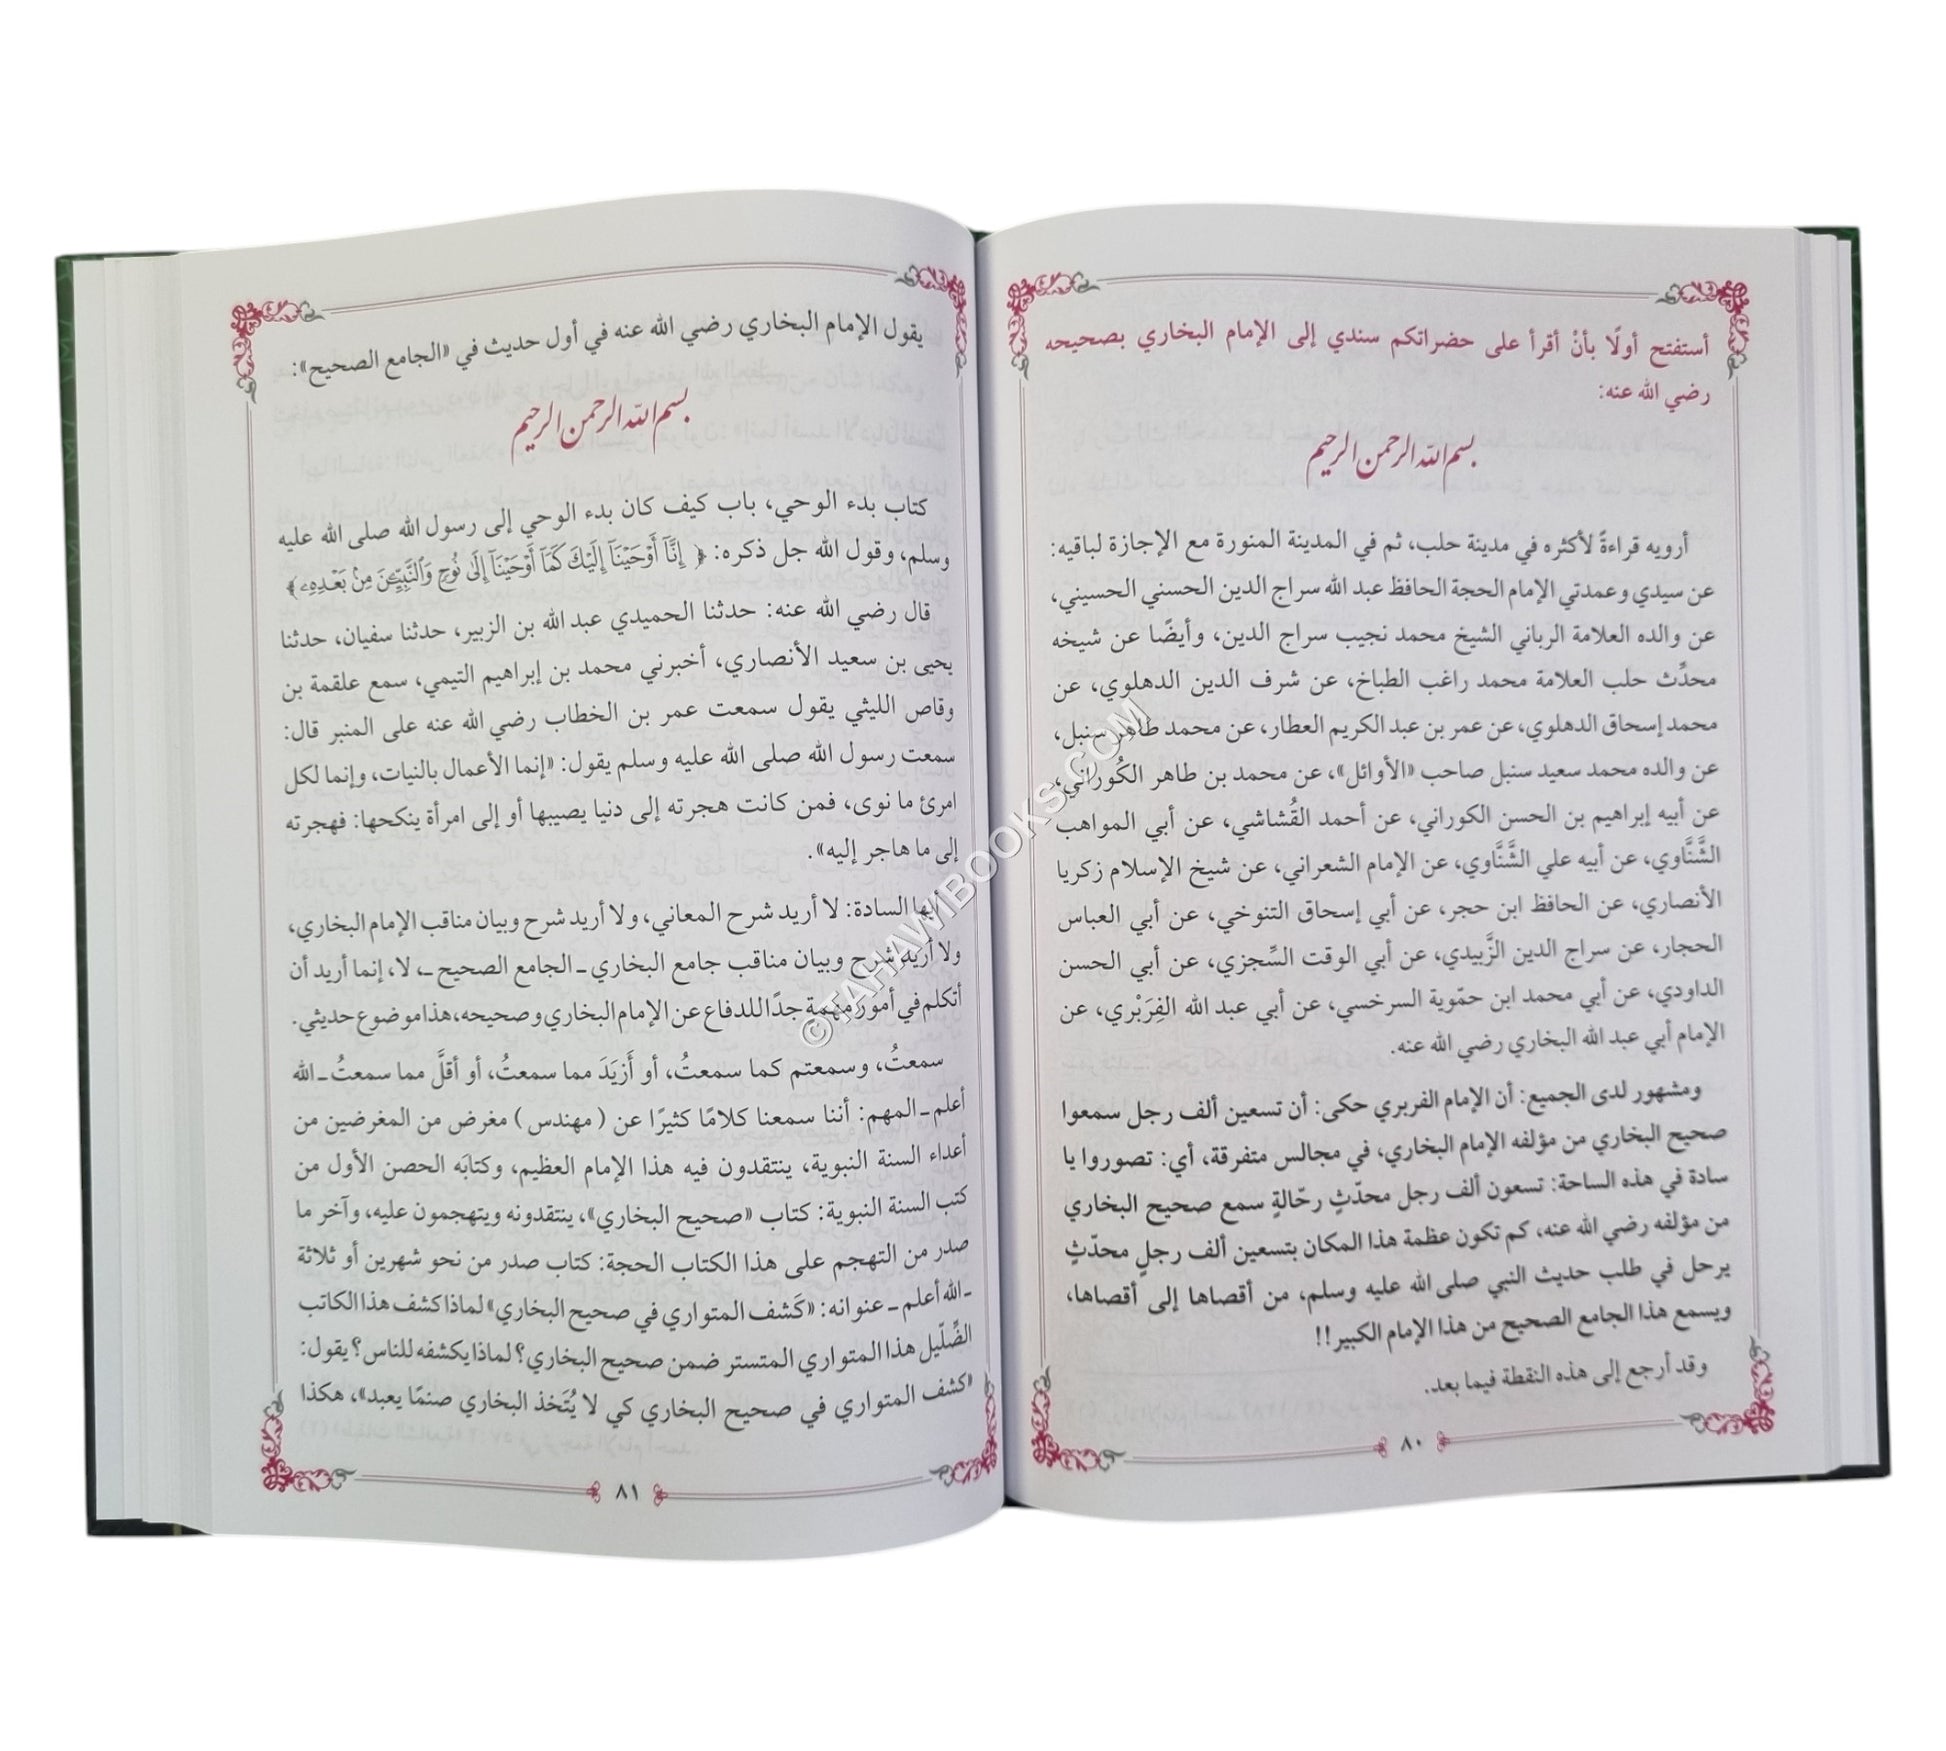 أستفتح أولًا بأنْ أقرأ على حضراتكم سندي إلى الإمام البخاري بصحيحه
رضي الله عنه:
بسم الله الرحمن الرحيم
أرويه قراءةً لأكثره في مدينة حلب، ثم في المدينة المنورة مع الإجازة لباقيه:
عن سيدي وعمدتي الإمام الحجة الحافظ عبد الله سراج الدين الحسني الحسيني،
عن والده العلامة الرباني الشيخ محمد نجيب سراج الدين، وأيضًا عن شيخه
محدِّث حلب العلامة محمد راغب الطباخ، عن شرف الدين الدهلوي، عن
محمد إسحاق الدهلوي، عن عمر بن عبد الكريم العطار، عن محمد طاهر سنبل،
عن والده محمد سعيد سنبل صاحب «الأوائل»، عن محمد بن طاهر الكُوراني،
عن أبيه إبراهيم بن الحسن الكوراني، عن أحمد القُشاشي، عن أبي المواهب
الشَّنَّاوي، عن أبيه علي الشَّنَّاوي، عن الإمام الشعراني، عن شيخ الإسلام زكريا
الأنصاري، عن الحافظ ابن حجر، عن أبي إسحاق التنوخي، عن أبي العباس
الحجار، عن سراج الدين الزَّبيدي، عن أبي الوقت السِّجزي، عن أبي الحسن
الداودي، عن أبي محمد ابن حمّوية السرخسي، عن أبي عبد الله الفِرَبْري، عن
الإمام أبي عبد الله البخاري رضي الله عنه.
ومشهور لدى الجميع: أن الإمام الفربري حكى: أن تسعين ألف رجل سمعوا
صحيح البخاري من مؤلفه الإمام البخاري، في مجالس متفرقة، أي: تصوروا يا
سادة في هذه الساحة: تسعون ألف رجل محدّثٍ رحّالةٍ سمع صحيح البخاري
من مؤلفه رضي الله عنه، كم تكون عظمة هذا المكان بتسعين ألف رجلٍ محدّثٍ
يرحل في طلب حديث النبي صلى الله عليه وسلم، من أقصاها إلى أقصاها،
ويسمع هذا الجامع الصحيح من هذا الإمام الكبير!!
وقد أرجع إلى هذه النقطة فيما بعد.
٨٠
يقول الإمام البخاري رضي الله عنه في أول حديث في «الجامع الصحيح»:
بسم الله الرحمن الرحيم
كتاب بدء الوحي، باب كيف كان بدء الوحي إلى رسول الله صلى الله عليه
وسلم، وقول الله جل ذكره: ﴿ إِنَّآ أَوْحَيْنَآ إِلَيْكَ كَمَآ أَوْحَيْنَآ إِلَىٰ نُوحٍ وَٱلنَّبِيِّـۧنَ مِنۢ بَعْدِهِۦ ﴾
قال رضي الله عنه: حدثنا الحميدي عبد الله بن الزبير، حدثنا سفيان، حدثنا
يحيى بن سعيد الأنصاري، أخبرني محمد بن إبراهيم التيمي، سمع علقمة بن
وقاص الليثي يقول سمعت عمر بن الخطاب رضي الله عنه على المنبر قال:
سمعت رسول الله صلى الله عليه وسلم يقول: «إنما الأعمال بالنيات، وإنما لكل
امرئ ما نوى، فمن كانت هجرته إلى دنيا يصيبها أو إلى امرأة ينكحها: فهجرته
إلى ما هاجر إليه».
أيها السادة: لا أريد شرح المعاني، ولا أريد شرح وبيان مناقب الإمام البخاري،
ولا أريد شرح وبيان مناقب جامع البخاري ـ الجامع الصحيح ـ، لا، إنما أريد أن
أتكلم في أمور مهمة جدًا للدفاع عن الإمام البخاري وصحيحه، هذا موضوع حديثي.
سمعتُ، وسمعتم كما سمعتُ، أو أَزيَدَ مما سمعتُ، أو أقلَّ مما سمعتُ ـ الله
أعلم ـ المهم: أننا سمعنا كلامًا كثيرًا عن (مهندس) مغرض من المغرضين من
أعداء السنة النبوية، ينتقدون فيه هذا الإمام العظيم، وكتابَه الحصن الأول من
كتب السنة النبوية: كتاب «صحيح البخاري»، ينتقدونه ويتهجمون عليه، وآخر ما
صدر من التهجم على هذا الكتاب الحجة: كتاب صدر من نحو شهرين أو ثلاثة
ـ الله أعلم ـ عنوانه: «كَشف المتواري في صحيح البخاري» لماذا كشف هذا الكاتب
الضِّلّيل هذا المتواري المتستر ضمن صحيح البخاري؟ لماذا يكشفه للناس؟ يقول:
«كشف المتواري في صحيح البخاري كي لا يُتَخذ البخاري صنمًا يعبد»، هكذا
٨١
©TAHAWIBOOKS.COM